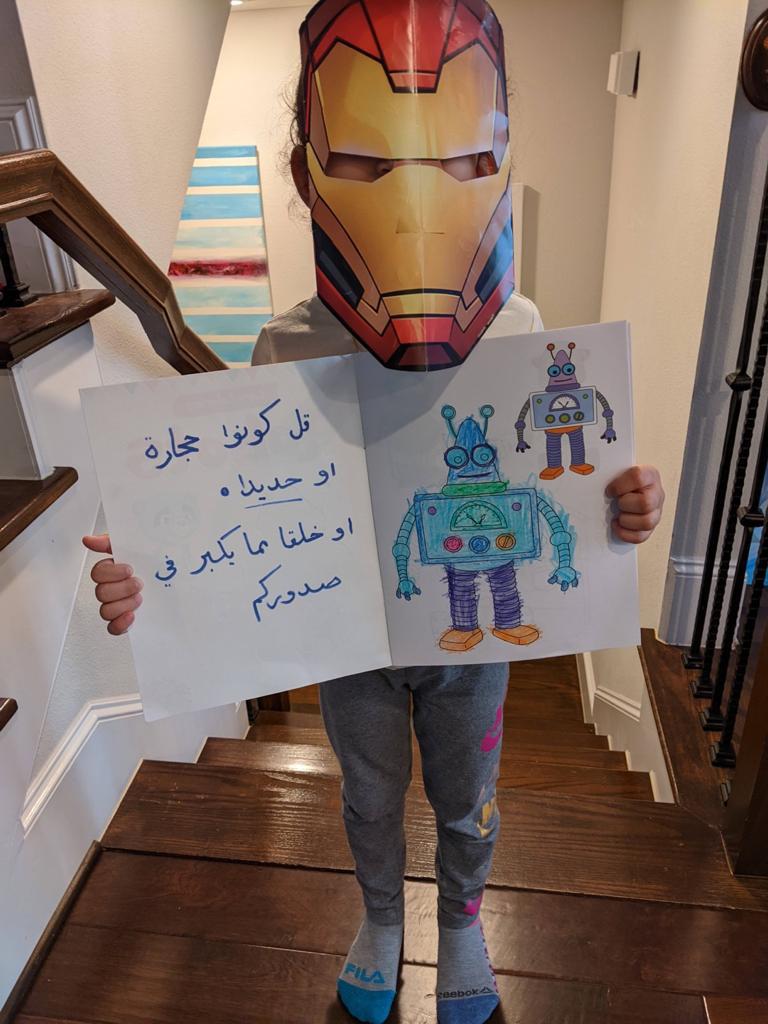 قل كونوا حجارة
او حديدا ه
او خلقا مما يكبر في
صدوركم
FILA
Reebok